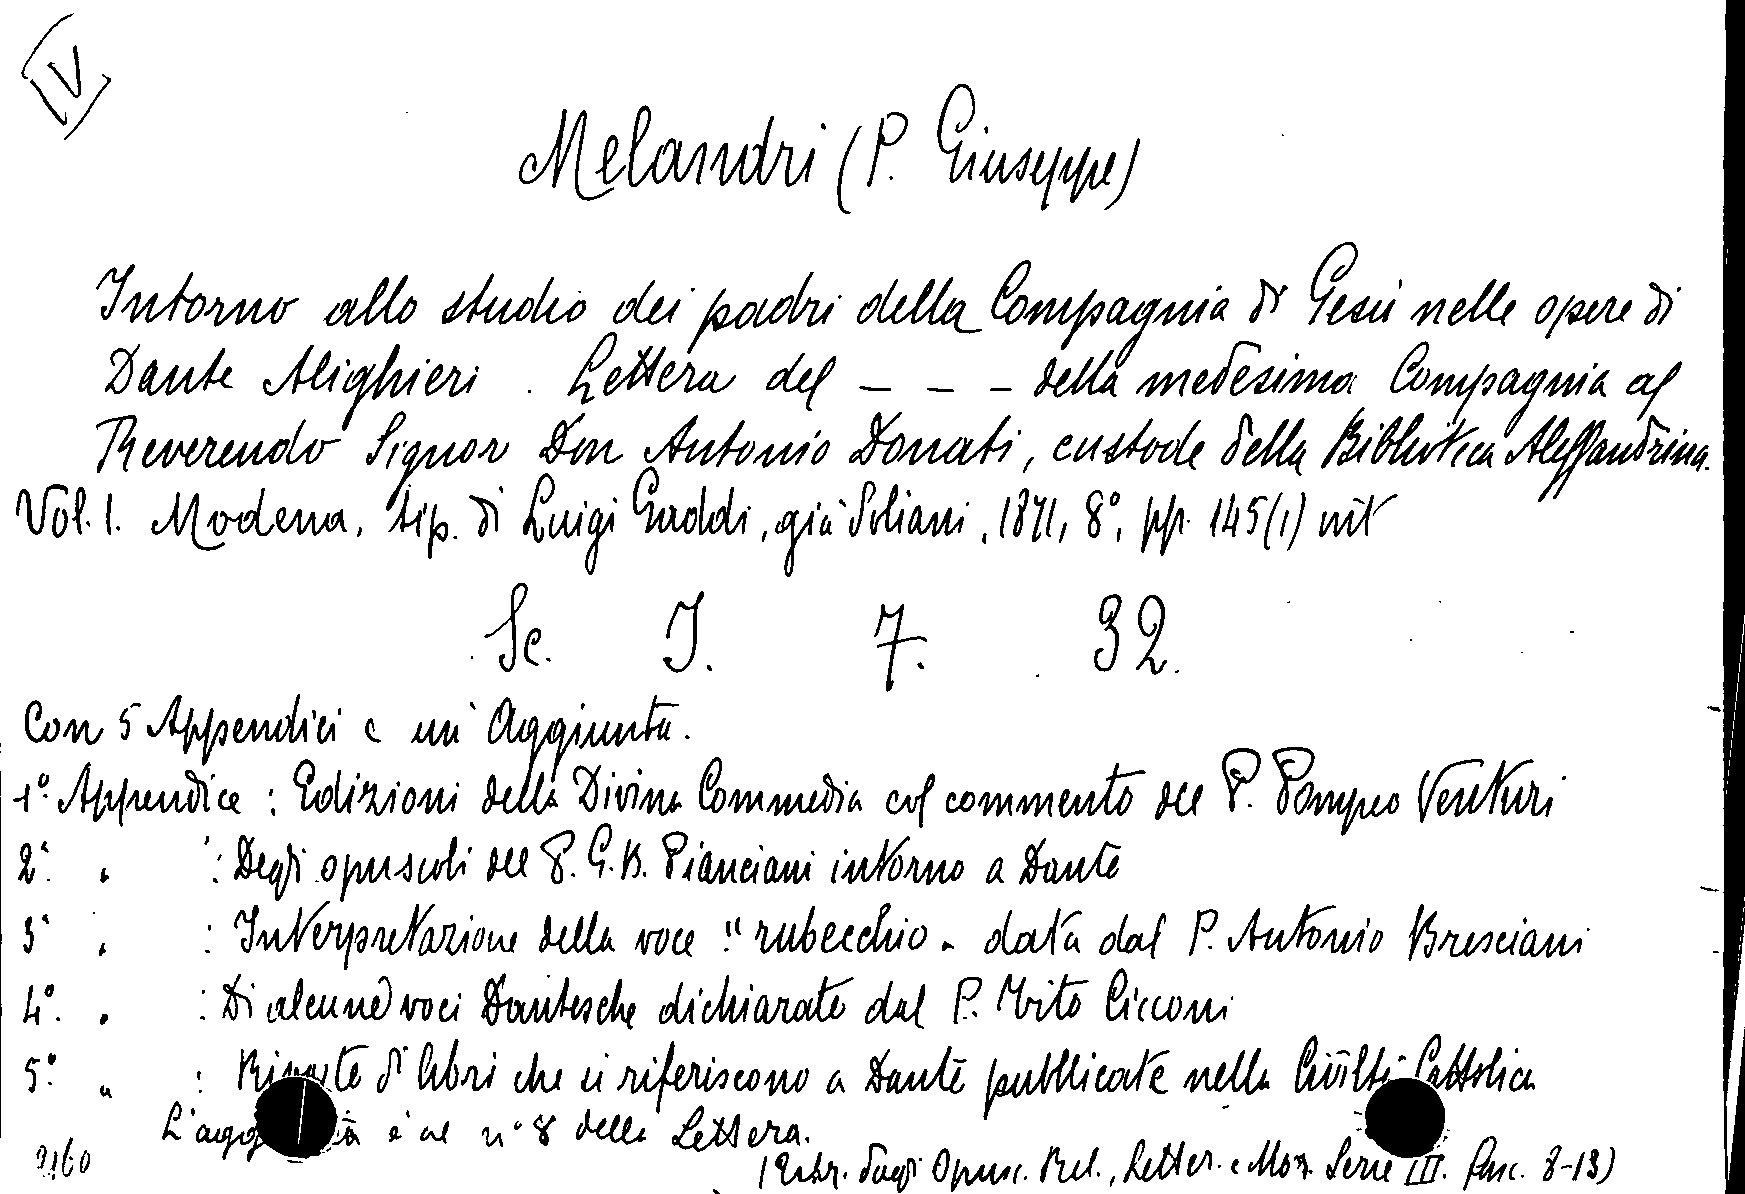 IV
Melandri (P. Giuseppe)
Intorno allo studio dei padri della Compagnia di Gesù nelle opere di
Dante Alighieri. Lettera del _ _ _ della medesima Compagnia al
Reverendo Signor Don Antonio Donati, custode della Biblioteca Alessandrina.
Vol. I. Modena, tip. di Luigi Gaddi, già Soliani, 1871, 8°, pp. 145(1)
Sc. I. 7. 32.
Con 5 Appendici e un' Aggiunta.
1ª Appendice : Edizioni della Divina Commedia col commento del P. Pompeo Venturi
2ª " : Degli opuscoli del P. G. B. Pianciani intorno a Dante
3ª " : Interpretazione della voce "rubecchio" data dal P. Antonio Bresciani
4ª. " : Di alcune voci Dantesche dichiarate dal P. Vito Cicconi
5ª. " : di libri che si riferiscono a Dante pubblicate nella Civiltà Cattolica
L'aggiunta è al n° 8 della Lettera.
(Estr. dagli Opusc. Rel., Letter. e Mor. Serie III. fasc. 8-13)
2160